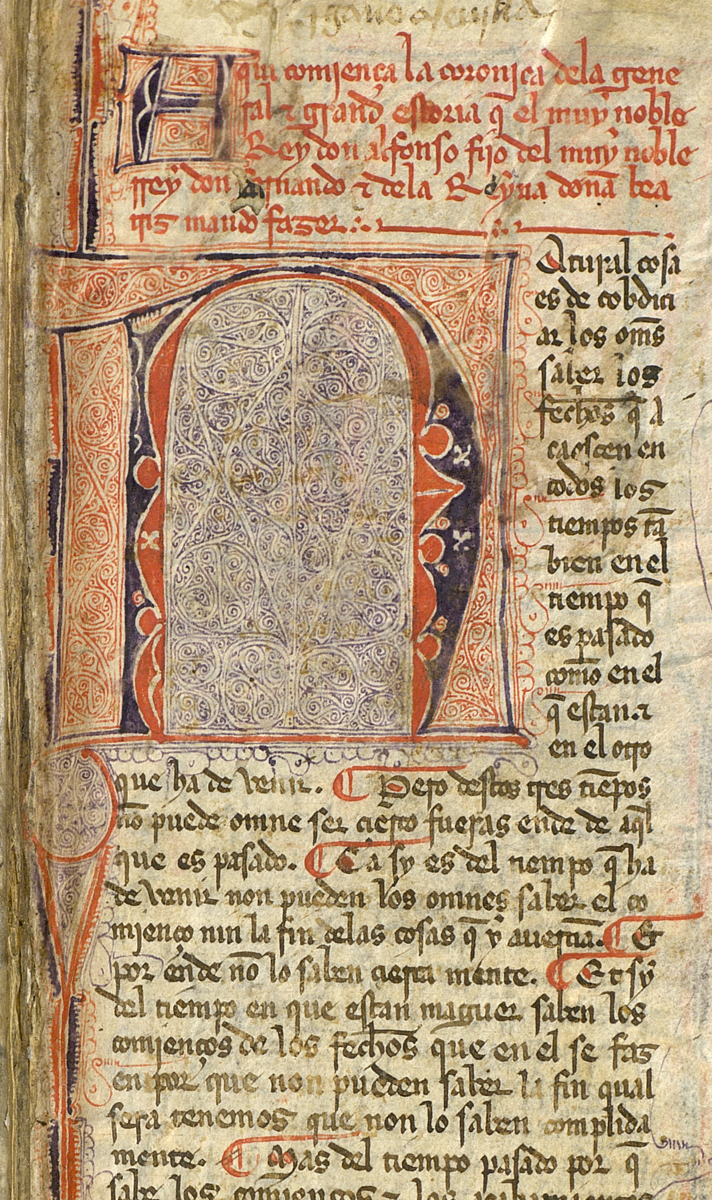 Aqui comiença la coronica dela gene
ral ⁊ grand estoria q̃ el muy noble
Rey don alfonso fijo del muy noble
rrey don fernando ⁊ dela Reyna doña bea
tris mando fazer
Natural cosa
es de cobdici
ar los om̃s
saber los
fechos q̃ a
caesçen en
todos los
tiempos tã
bien en el
tiempo q̃
es pasado
como en el
q̃ estan ⁊
en el otro
que ha de venir. ¶ Pero destos tres tiẽpos
nõ puede omne ser cierto fueras ende de aq̃l
que es pasado. ¶ Ca sy es del tiempo q̃ ha
de venir non pueden los omnes saber el co
mienço nin la fin delas cosas q̃ y auerna. ¶ Et
por ende nõ lo saben cierta mente. ¶ Et sy
del tiempo en que estan maguer saben los
comienços de los fechos que en el se faz
en por que non pueden saber la fin qual
sera tenemos que non lo saben complida
mente. ¶ Mas del tiempo pasado por q̃
saben los comienços ⁊ los